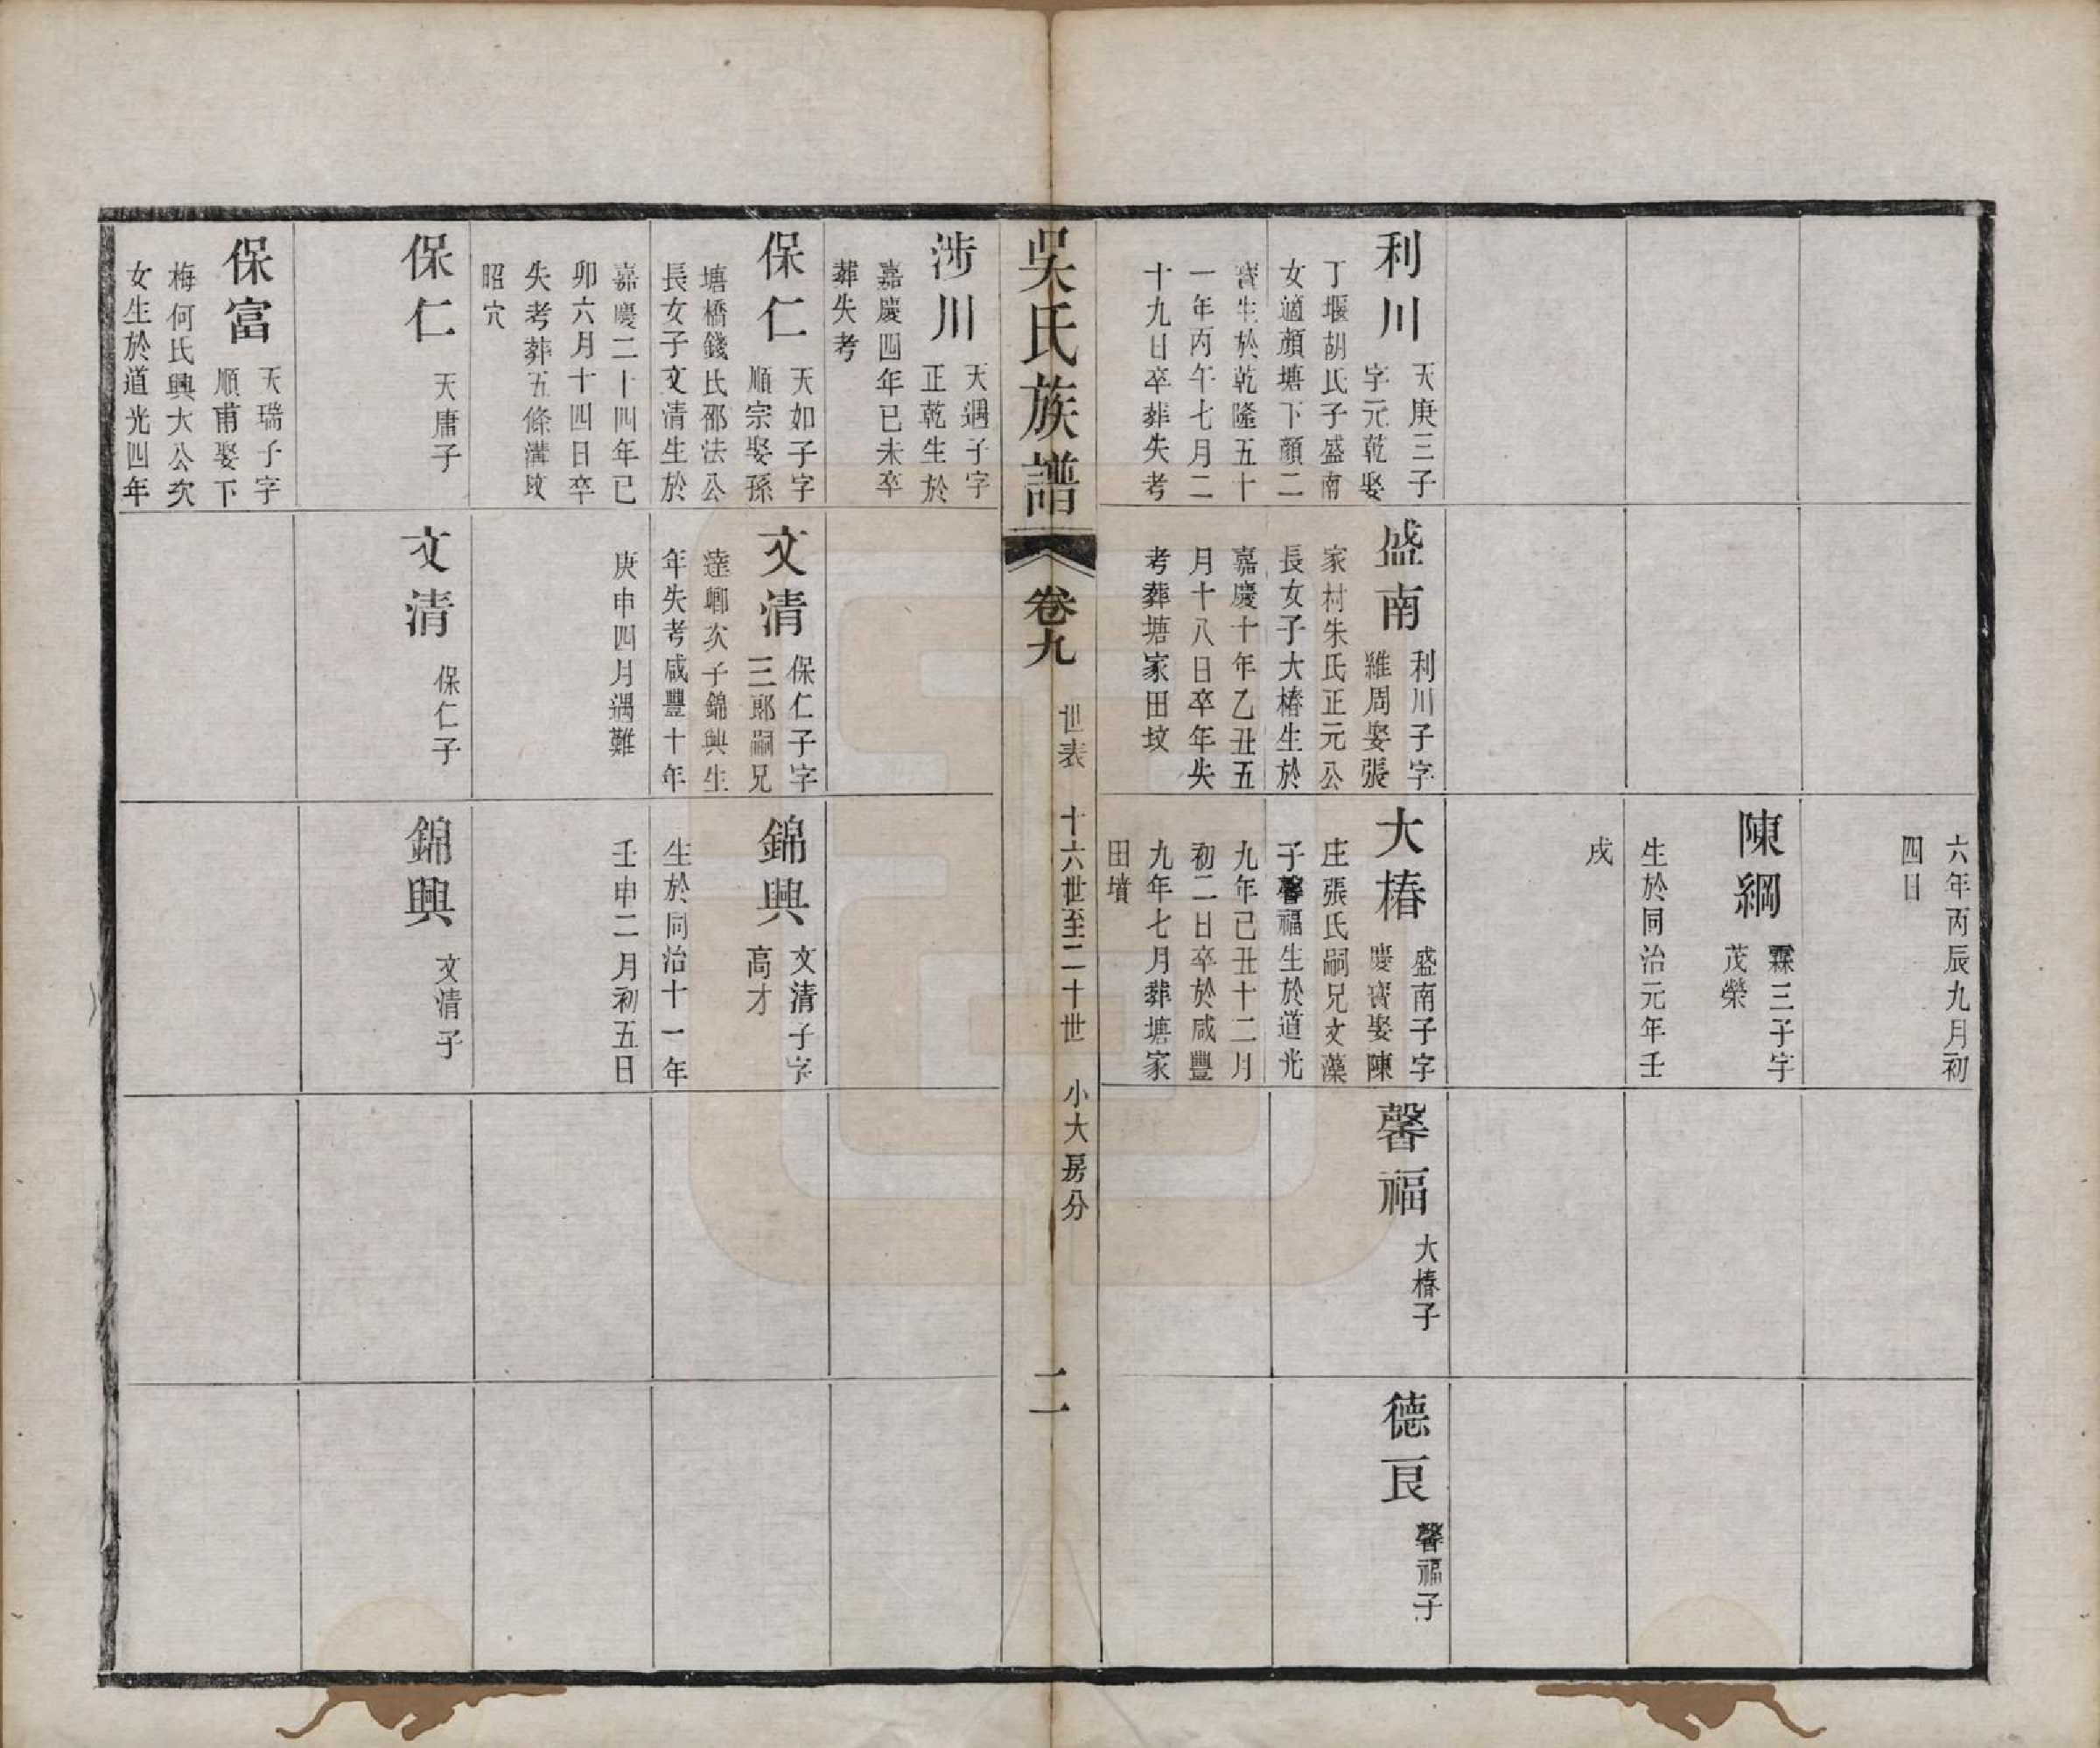 六年丙辰九月初
四日
陳綱
霖三子字
茂榮
生於同治元年壬
戌
利川
天庚三子
字元乾娶
丁堰胡氏子盛南
女適顔塘下顔二
寳生於乾隆五十
一年丙午七月二
十九日卒葬失考
盛南
利川子字
維周娶張
家村朱氏正元公
長女子大椿生於
嘉慶十年乙丑五
月十八日卒年失
考葬塘家田坟
大椿
盛南子字
慶寳娶陳
庄張氏嗣兄文藻
子馨福生於道光
九年己丑十二月
初二日卒於咸豐
九年七月葬塘家
田墳
馨福
大椿子
德良
馨福子
吳氏族譜
卷九
世表
十六世至二十世
小大房分
二
涉川
天遇子字
正乾生於
嘉慶四年已未卒
葬失考
保仁
天如子字
順宗娶孫
塘橋錢氏邵法公
長女子文清生於
嘉慶二十四年已
卯六月十四日卒
失考葬五條溝坟
昭穴
文清
保仁子字
三郎嗣兄
達卿次子錦興生
年失考咸豐十年
庚申四月遇難
錦興
文清子字
高才
生於同治十一年
壬申二月初五日
保仁
天庸子
文清
保仁子
錦興
文清子
保富
天瑞子字
順甫娶下
梅何氏興大公次
女生於道光四年